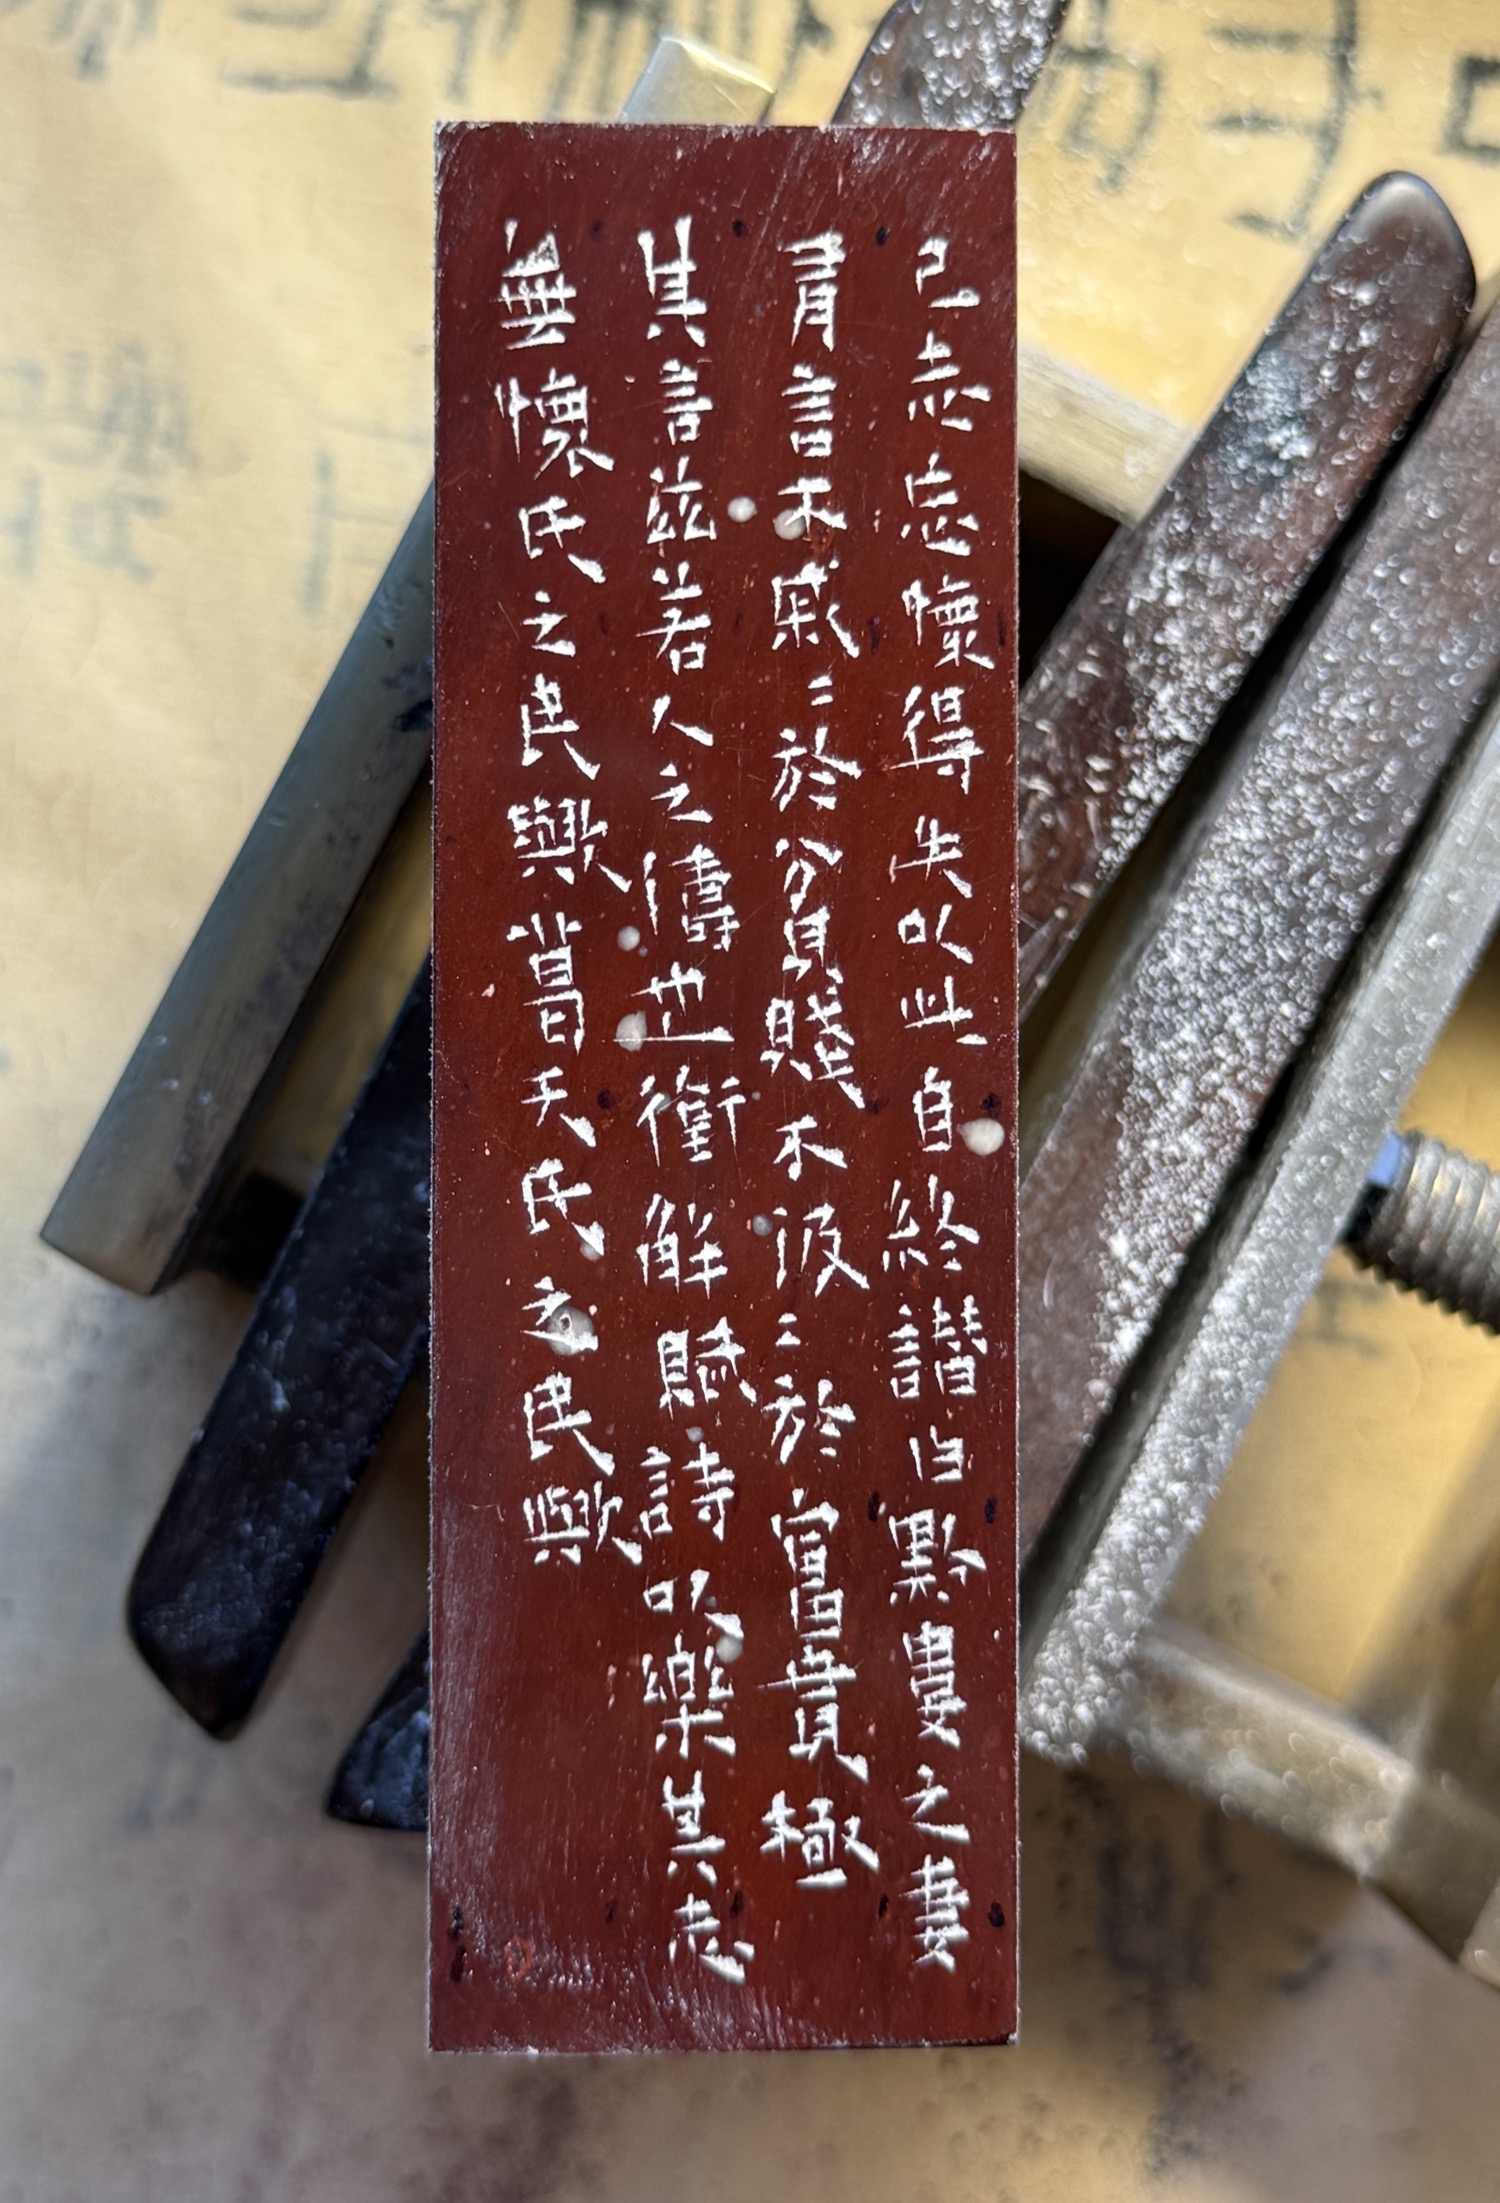 己志忘懷得失以此自終讚曰黔婁之妻
有言不戚〻於貧賤不汲〻於富貴極
其言茲若人之儔也銜觴賦詩以樂其志
無懷氏之民歟葛天氏之民歟